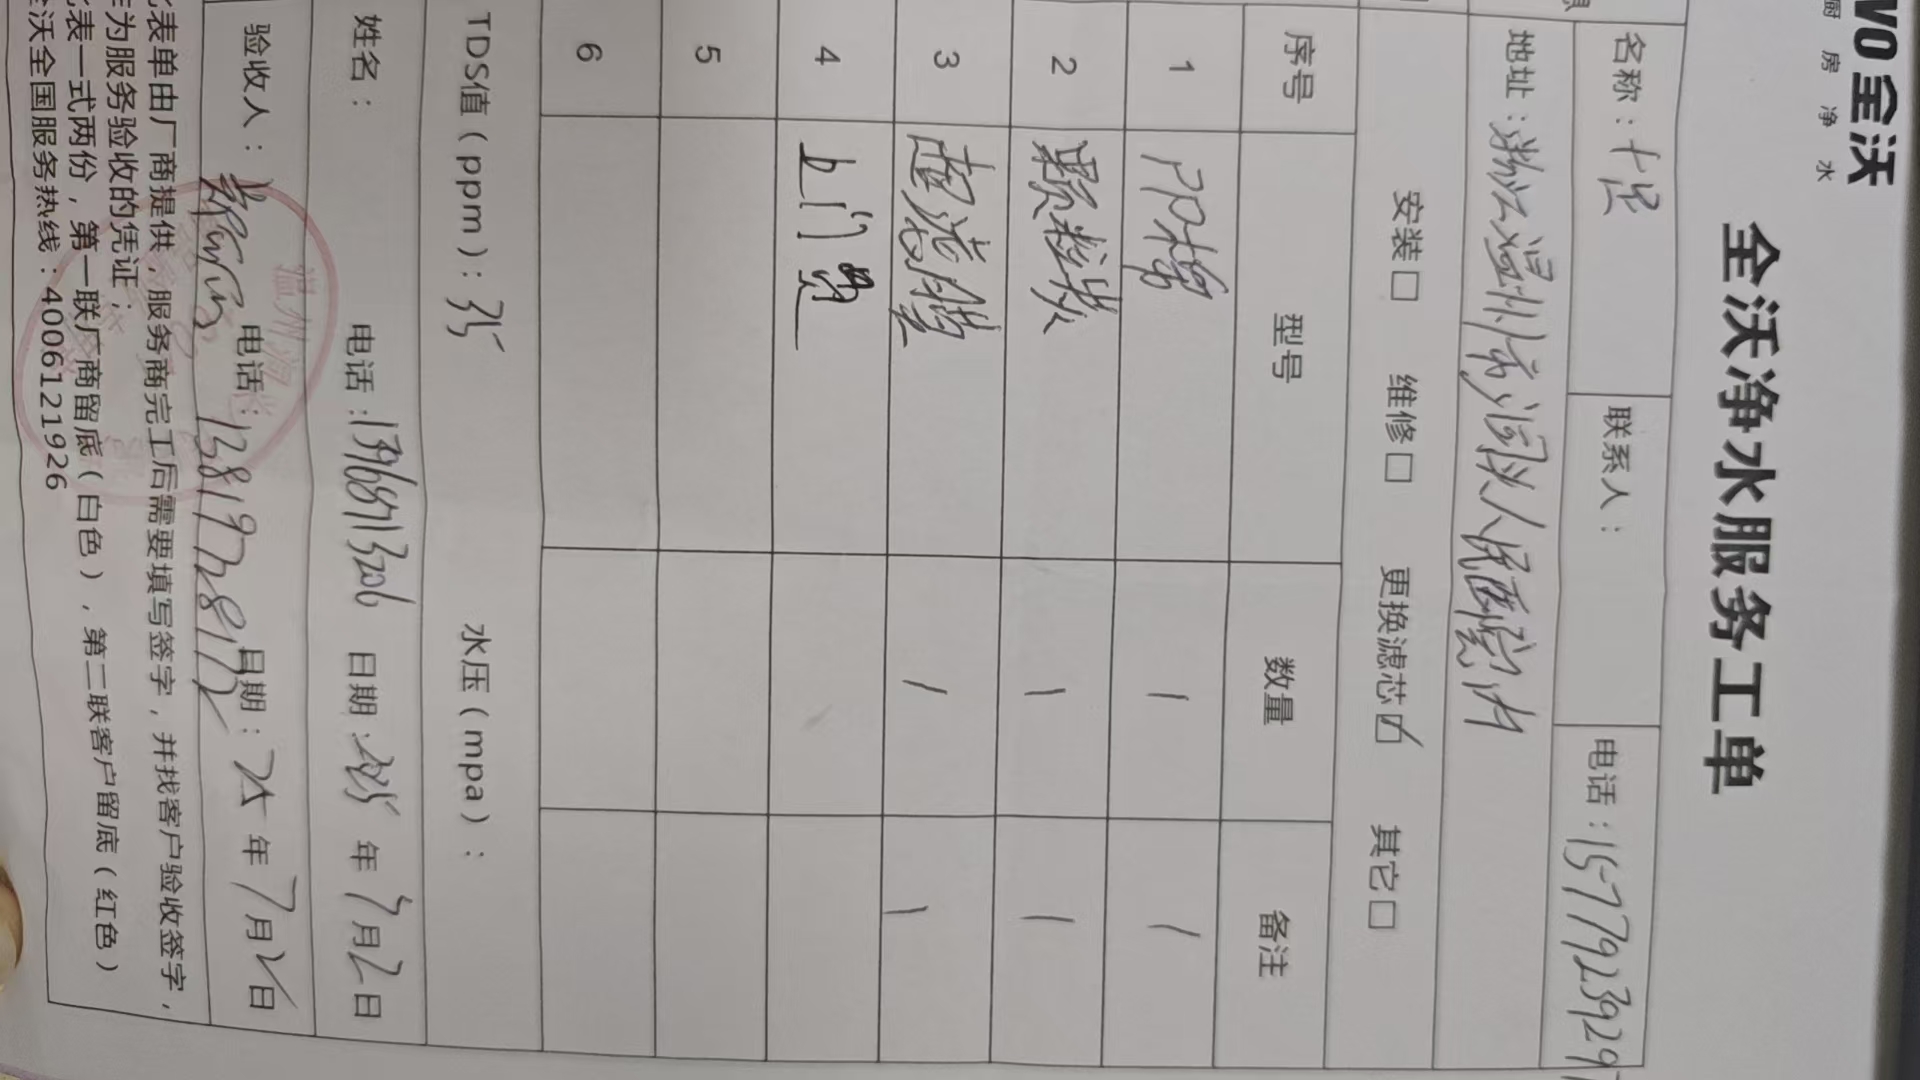 VO全沃
厨房净水
全沃净水服务工单
息
名称：十足 联系人： 电话：15779239297
地址：浙江温州市洞头人民医院内
安装□ 维修□ 更换滤芯☑ 其它□
序号 型号 数量 备注
1 PP棉 1 1
2 颗粒炭 1 1
3 超滤膜 1 1
4 上门费
5
6
TDS值（ppm）：35 水压（mpa）：
姓名： 电话： 日期：2025年7月2日
验收人： 电话：13819778172 日期：25年7月2日
表单由厂商提供，服务商完工后需要填写签字，并找客户验收签字，
作为服务验收的凭证；
表一式两份，第一联厂商留底（白色），第二联客户留底（红色）
全沃全国服务热线：4006121926
温州